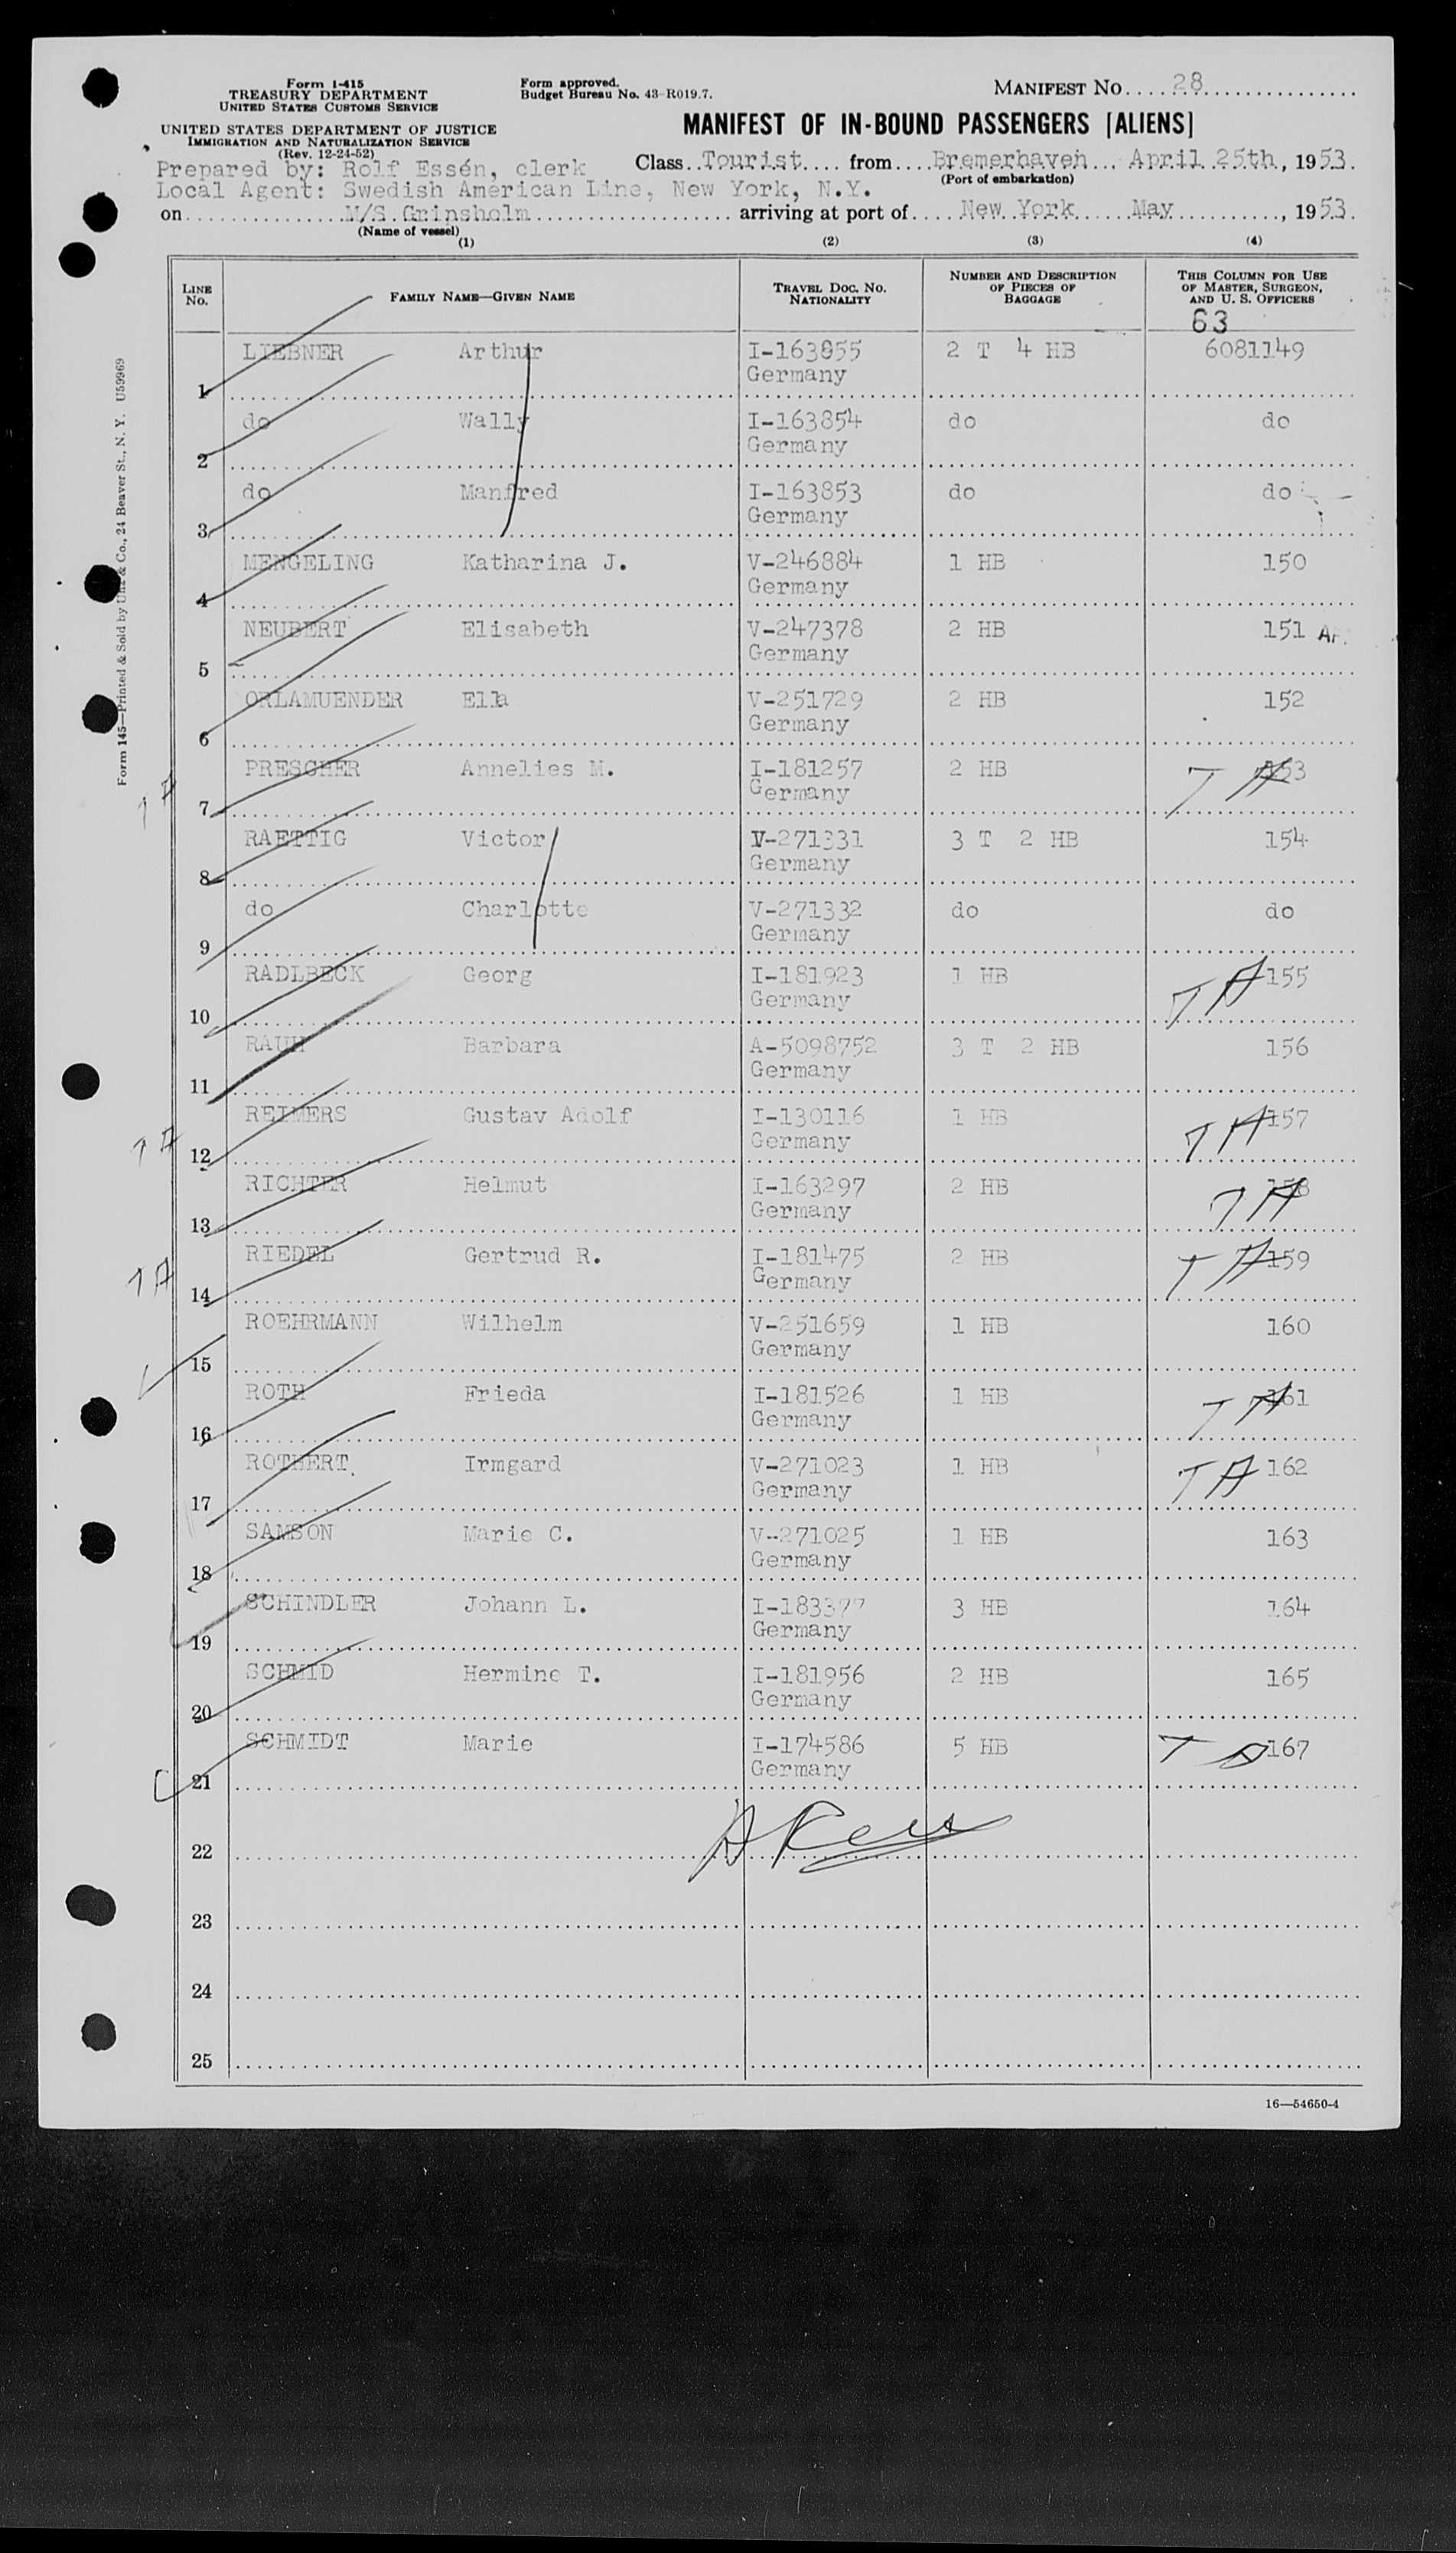 Form I-415
TREASURY DEPARTMENT
UNITED STATES CUSTOMS SERVICE
UNITED STATES DEPARTMENT OF JUSTICE
IMMIGRATION AND NATURALIZATION SERVICE
(Rev. 12-24-52)
Form approved.
Budget Bureau No. 43-R019.7.
MANIFEST NO. 28
MANIFEST OF IN-BOUND PASSENGERS [ALIENS]
Prepared by: Rolf Essén, clerk
Class Tourist from Bremerhaven April 25th, 1953.
(Port of embarkation)
Local Agent: Swedish American Line, New York, N.Y.
on M/S Gripsholm arriving at port of New York May, 1953.
(Name of vessel)
(1) (2) (3) (4)
LINE No. FAMILY NAME—GIVEN NAME TRAVEL DOC. NO. NATIONALITY NUMBER AND DESCRIPTION OF PIECES OF BAGGAGE THIS COLUMN FOR USE OF MASTER, SURGEON, AND U. S. OFFICERS
63
1 LIEBNER Arthur I-163855 Germany 2 T 4 HB 6081149
2 do Wally I-163854 Germany do do
3 do Manfred I-163853 Germany do do
4 MENGELING Katharina J. V-246884 Germany 1 HB 150
5 NEUBERT Elisabeth V-247378 Germany 2 HB 151
6 ORLAMUENDER Ella V-251729 Germany 2 HB 152
TA 7 PRESCHER Annelies M. I-181257 Germany 2 HB TA 153
8 RAETTIG Victor V-271331 Germany 3 T 2 HB 154
9 do Charlotte V-271332 Germany do do
10 RADLBECK Georg I-181923 Germany 1 HB TA 155
11 RAUH Barbara A-5098752 Germany 3 T 2 HB 156
TA 12 REIMERS Gustav Adolf I-130116 Germany 1 HB TA 157
13 RICHTER Helmut I-163297 Germany 2 HB TA 158
TA 14 RIEDEL Gertrud R. I-181475 Germany 2 HB TA 159
15 ROEHRMANN Wilhelm V-251659 Germany 1 HB 160
16 ROTH Frieda I-181526 Germany 1 HB TA 161
17 ROTHERT Irmgard V-271023 Germany 1 HB TA 162
18 SAMSON Marie C. V-271025 Germany 1 HB 163
19 SCHINDLER Johann L. I-183377 Germany 3 HB 164
20 SCHMID Hermine T. I-181956 Germany 2 HB 165
21 SCHMIDT Marie I-174586 Germany 5 HB TA 167
22
23
24
25
16—54650-4
Form 145—Printed & Sold by Unz & Co., 24 Beaver St., N. Y. U59969